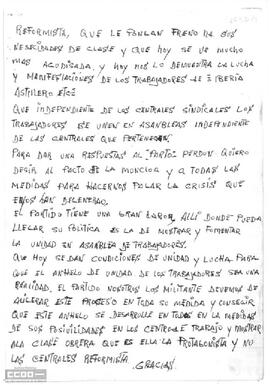 REFORMISTA, QUE LE PONLAN FRENO DA SUS
NECECIDADES DE CLASE Y QUE HOY SE VE MUCHO
MAS ACUDISADA, Y HOY NOS LO DEMUESTRA LA LUCHA
Y MANIFESTACIONES DE LOS TRABAJADORES DE IBERIA
ASTILLERO ETC
QUE INDEPENDIENTE DE LOS CENTRALES SINDICALES LOS
TRABAJADORES SE UNEN EN ASANBLEAS INDEPENDIENTE
DE LAS CENTRALES QUE PERTENESCAN
PARA DAR UNA RESPUESTAS AL "PORTO" PERDON QUIERO
DESIR AL PACTO DE LA MONCLOA Y A TODAS LAS
MEDIDAS PARA HACERNOS PAGAR LA CRISIS QUE
ELLOS HAN
EL PARTIDO TIENE UNA GRAN LABOR, ALLI DONDE PUEDA
LLEGAR SU POLITICA ES LA DE MOSTRAR Y FOMENTAR
LA UNIDAD EN ASANBLEA DE TRABAJADORES.
QUE HOY SE DAN CONDICIONES DE UNIDAD Y LUCHA PARA
QUE EL ANHELO DE UNIDAD DE LOS TRABAJADORES SEA UNA
REALIDAD, EL PARTIDO NOSOTROS LOS MILITANTE DEVEMOS DE
ACELERAR ESTE PROCESO EN TODA SU MEDIDA Y CONSEGUIR
QUE ESTE ANHELO SE DESARROLLE EN TODOS EN LA MEDIDAS
DE SUS POSIVILIDADES EN LOS CENTROS DE TRABAJO Y MOSTRAR
A LA CLASE OBRERA QUE ES ELLA LA PROTAGONISTA Y NO
LAS CENTRALES REFORMISTA.
GRACIAS
CCOO